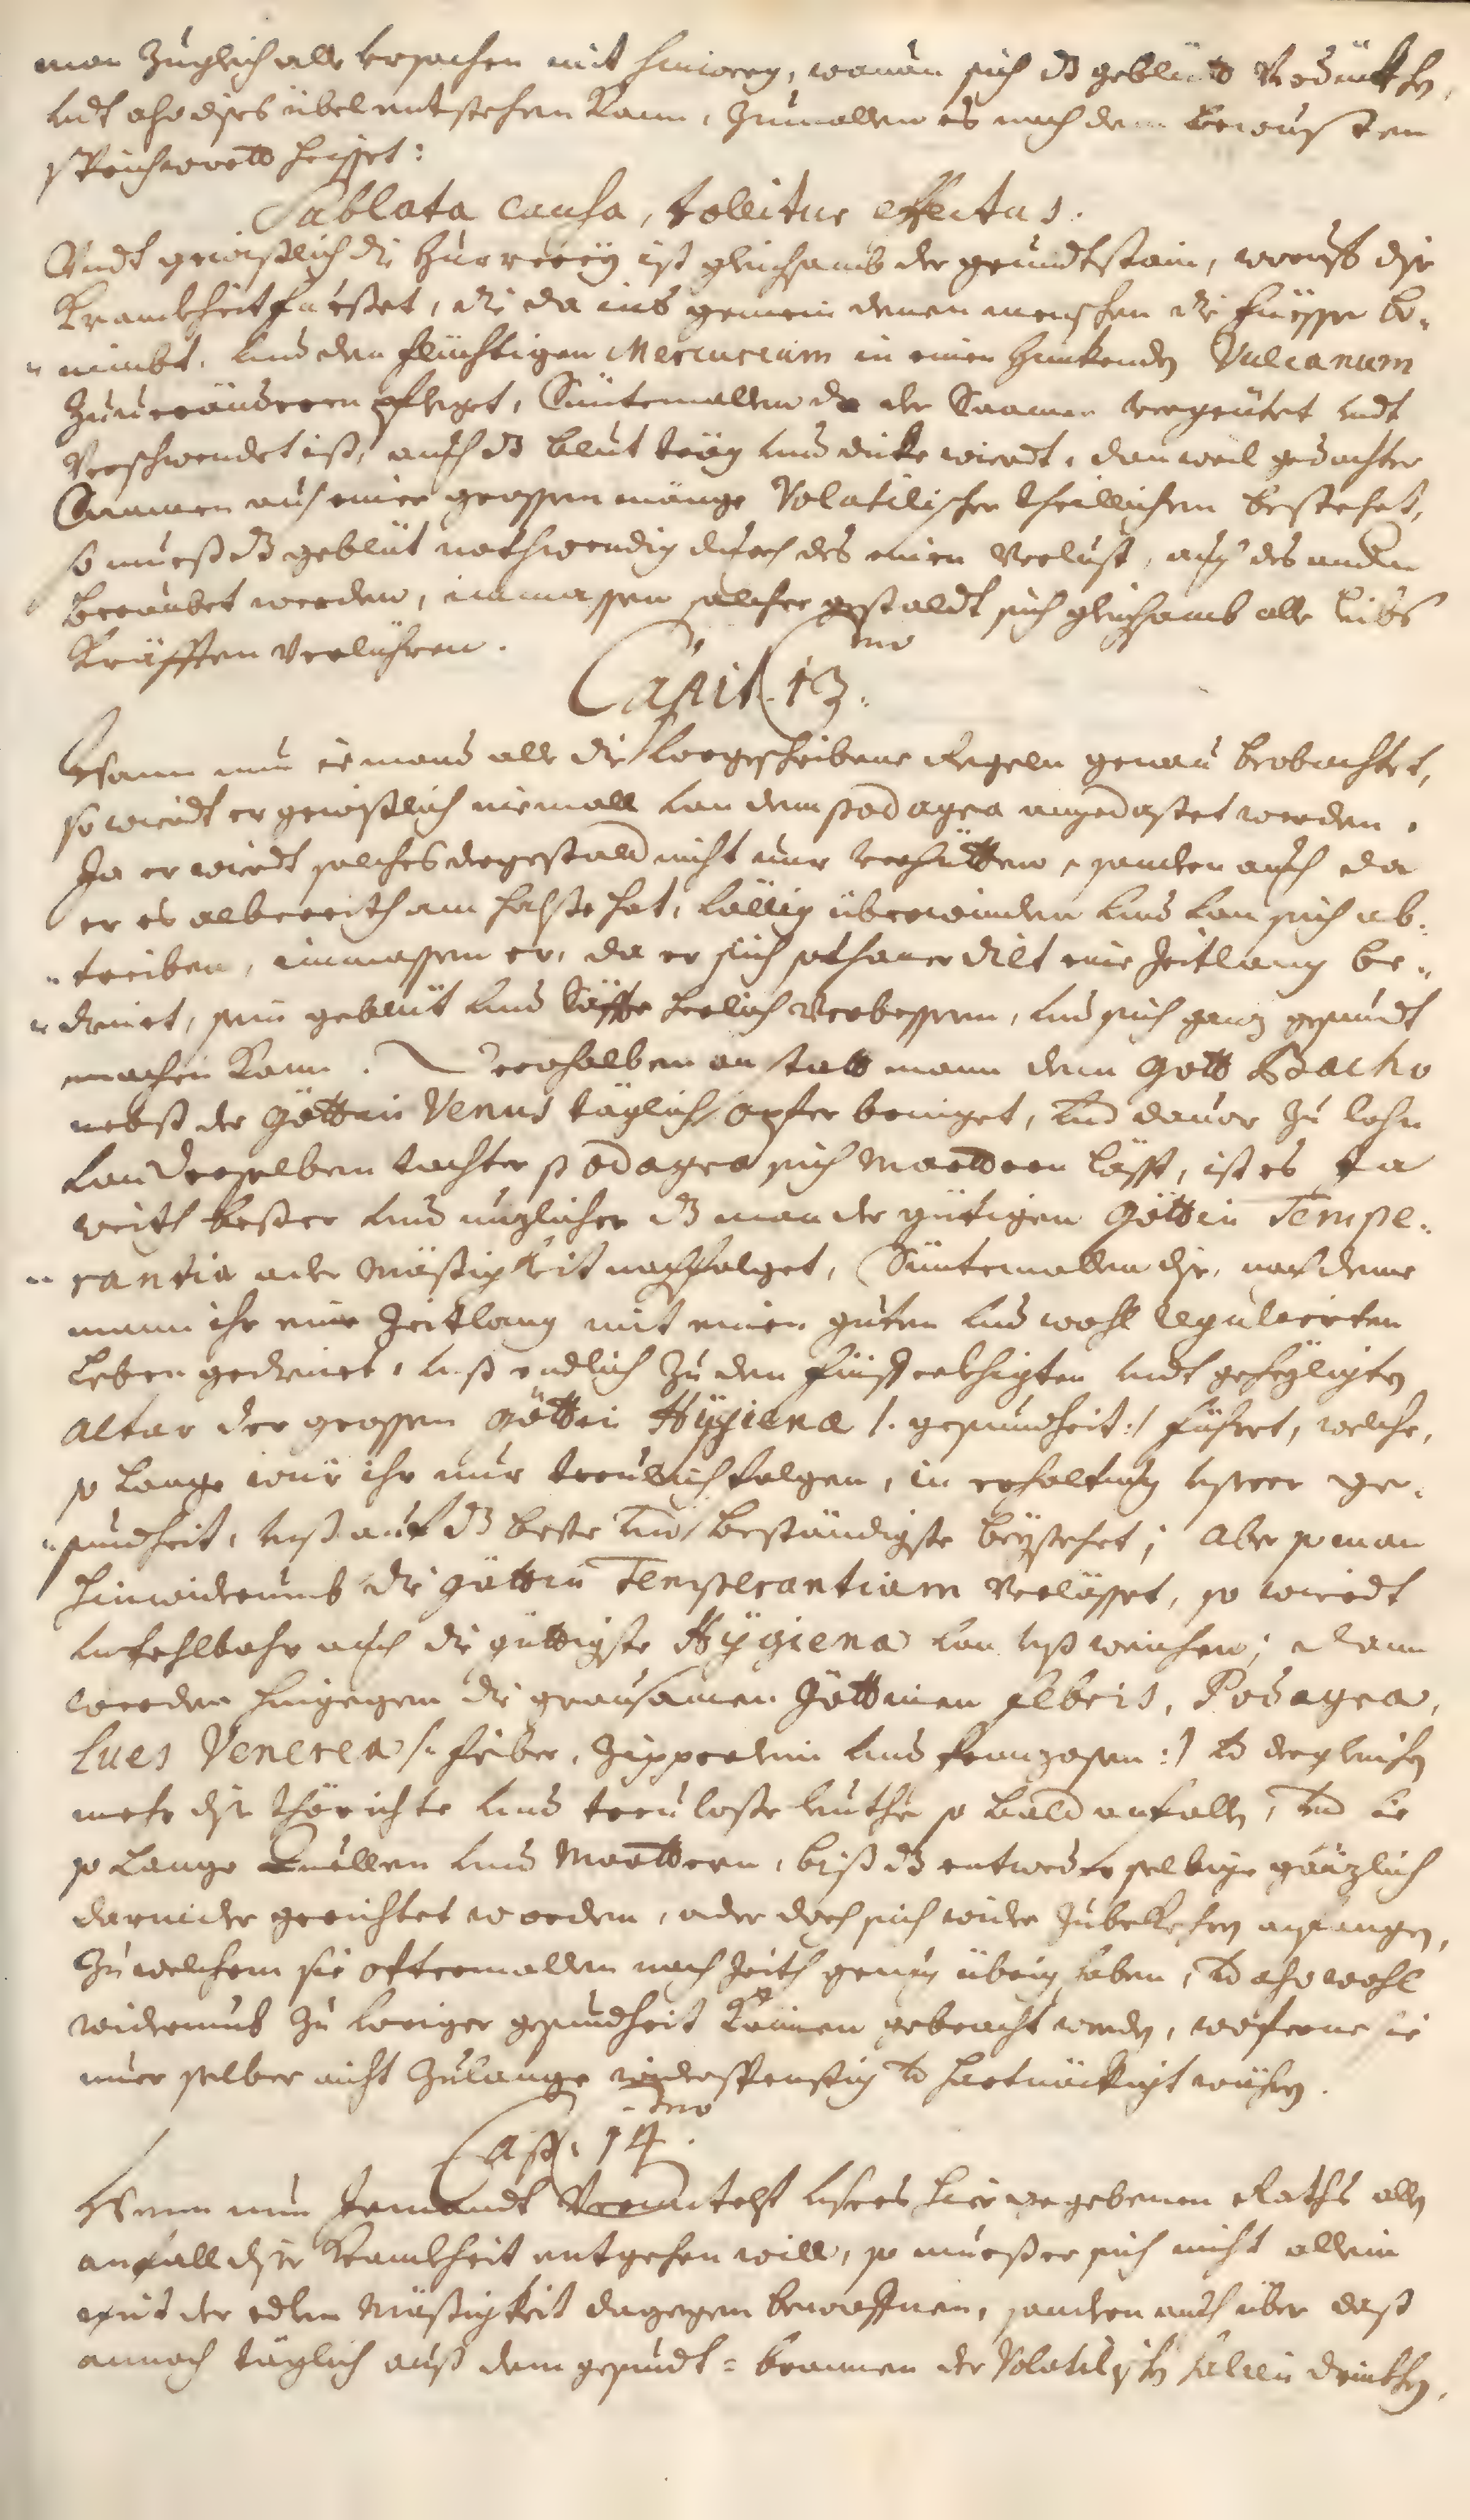 man zugleich alle ursachen mit hinweg, wovon sich dz geblüts verdückhen,
undt also dises übel entstehen kann, zumallen es nach dem bewusten
sprichwortt heisset:
Sablata causa, tollitur effectus.
Undt gewisslich die Hurrerey ist gleichsamb der grundtstain, worauf dise
Kranckheit fuesset, die da ins gemein denen menschen die füesse be-
nimbt, und den flüchtigen Mercurium in einen hinkenden Vulcanum
zuverändern pfleget, Süntemallen da der Saamen vergeütet undt
verschwendet ist, auch dz blut träg und dicke wirdt, dan weil gedachter
Saamen aus einer grossen mänge Volatilischer theillichen bestehet,
so muess dz geblüt nothwendig durch des einen verlust, auch des andern
beraubet werden, immassen solcher gestaldt sich gleichsamb alle leibs
Kräfften verlühren.
Capit. 13. mo
Wann nun iemand alle die vorgeschribene Regeln genau beobachtet,
so wirdt er gewisslich niemall von dem podagra angedastet werden.
Ja er wirdt solches dergestald nicht nur verhütten, sondern auch da
er es albereith am halsse hat, völlig überwinden und von sich ab-
treiben, immassen er, da er sich sothaner diät eine Zeitlang be-
dienet, sein geblüt und Säffte herlich verbessern, und sich ganz gesundt
machen kann. Derohalben anstatt mann dem Gott Bacho
nebst der Göttin Venus täglich opfer bringet, und davor zu lohn
von derselben tochter podagra sich marttern lässt, ist es ja
weith besser und nuzlicher dz man der gütigen Göttin Tempe-
rantia oder Mässigkeit nachfolget, Süntemallen dise, nachdeme
mann ihr eine Zeitlang mit einen guten und wohl regulierten
Leben gedienet, unss endlich zu den geheyligten
Altar der grossen Göttin Hygiena /: gesundheit :/ führet, welche,
so lange wür ihr nur treulich folgen, in erhaltung unserer ge-
sundheit, unss auf dz beste und beständigste beystehet; Aber so man
hinwiderumb die Göttin Temperantiam verlasset, so wirdt
unfehlbahr auch die güttigste Hygiena von unss weichen; Dann
werden hingegen die grausamen Göttinen febris, Podagra,
Lues Venerea /: fieber, Zipperlein und franzosen :/ und dergleichen
mehr dise thörichte und treulosse leuthe so bald anfallen, und sie
so lange quellen und Marttern, biss dz entweder selbige gänzlich
darnider gerichtet worden, oder doch sich wider zubekehren anfangen,
zu welchem sie offtermallen noch Zeith genug übrig haben, und also wohl
widerumb zu voriger gesundheit können gebracht werden, woferne sie
nur selber nicht zulange widerspenstig und hartnäckigt währen.
Cap. 14. mo
Wenn nun Jemandt Vermitelst unsers hier gegebenen Raths allen
anfall diser Kranckheit entgehen will, so muess er sich nicht allein
mit der edlen Mässigkeit dagegen bewaffnen, sondern auch über dass
annoch täglich auss dem gesundt-brunnen der Volatilischen salien drinckhen,